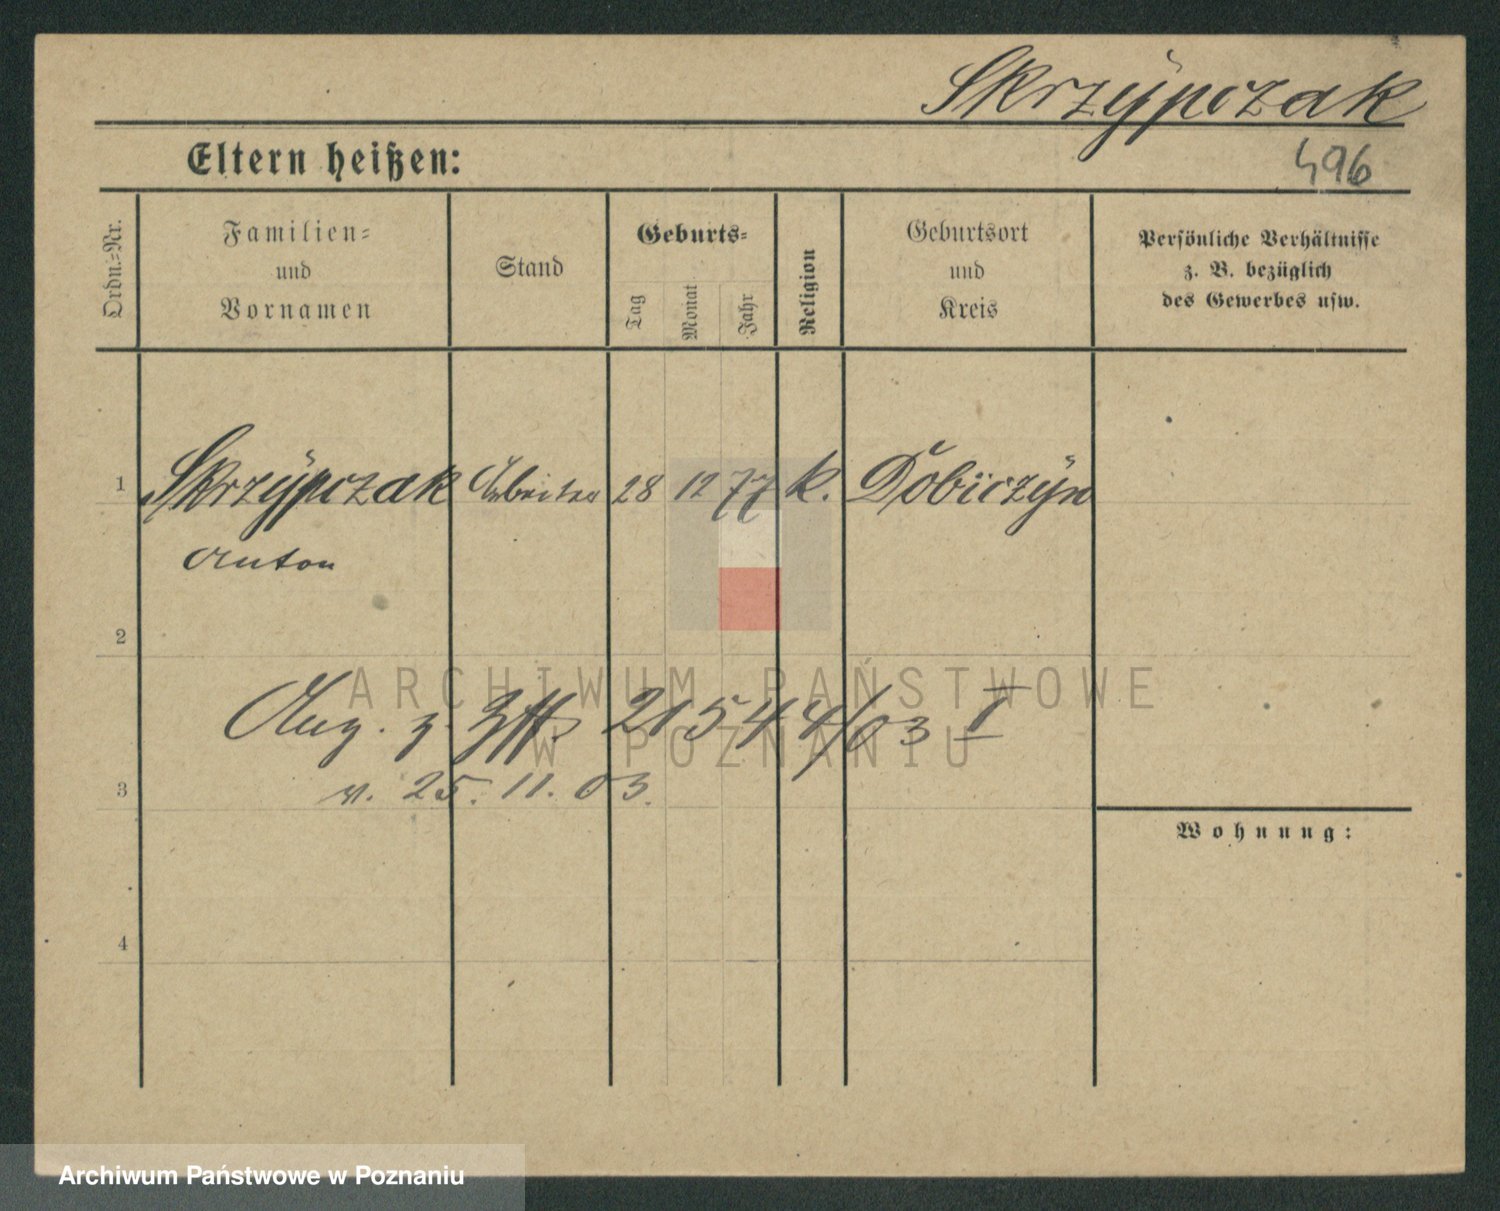 Skrzÿpczak
Eltern heißen:
496
Ordn.=Nr.
Familien=
und
Vornamen
Stand
Geburts=
Tag
Monat
Jahr
Religion
Geburtsort
und
Kreis
Persönliche Verhältnisse
z. B. bezüglich
des Gewerbes usw.
1 Skrzÿpczak Arbeiter 28 12 77 k. Dobiczÿn
Anton
2
ARCHIWUM PAŃSTWOWE
W POZNANIU
Ang. z. 21544/03 I
v. 25. 11. 03.
3
Wohnung:
4
Archiwum Państwowe w Poznaniu